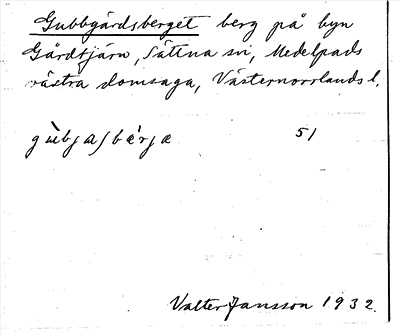 Gubbgårdsberget berg på byn
Gårdtjärn, Sättna sn, Medelpads
västra domsaga, Västernorrlands l.
gùbjaʃbærja 51
Valter Jansson 1932.